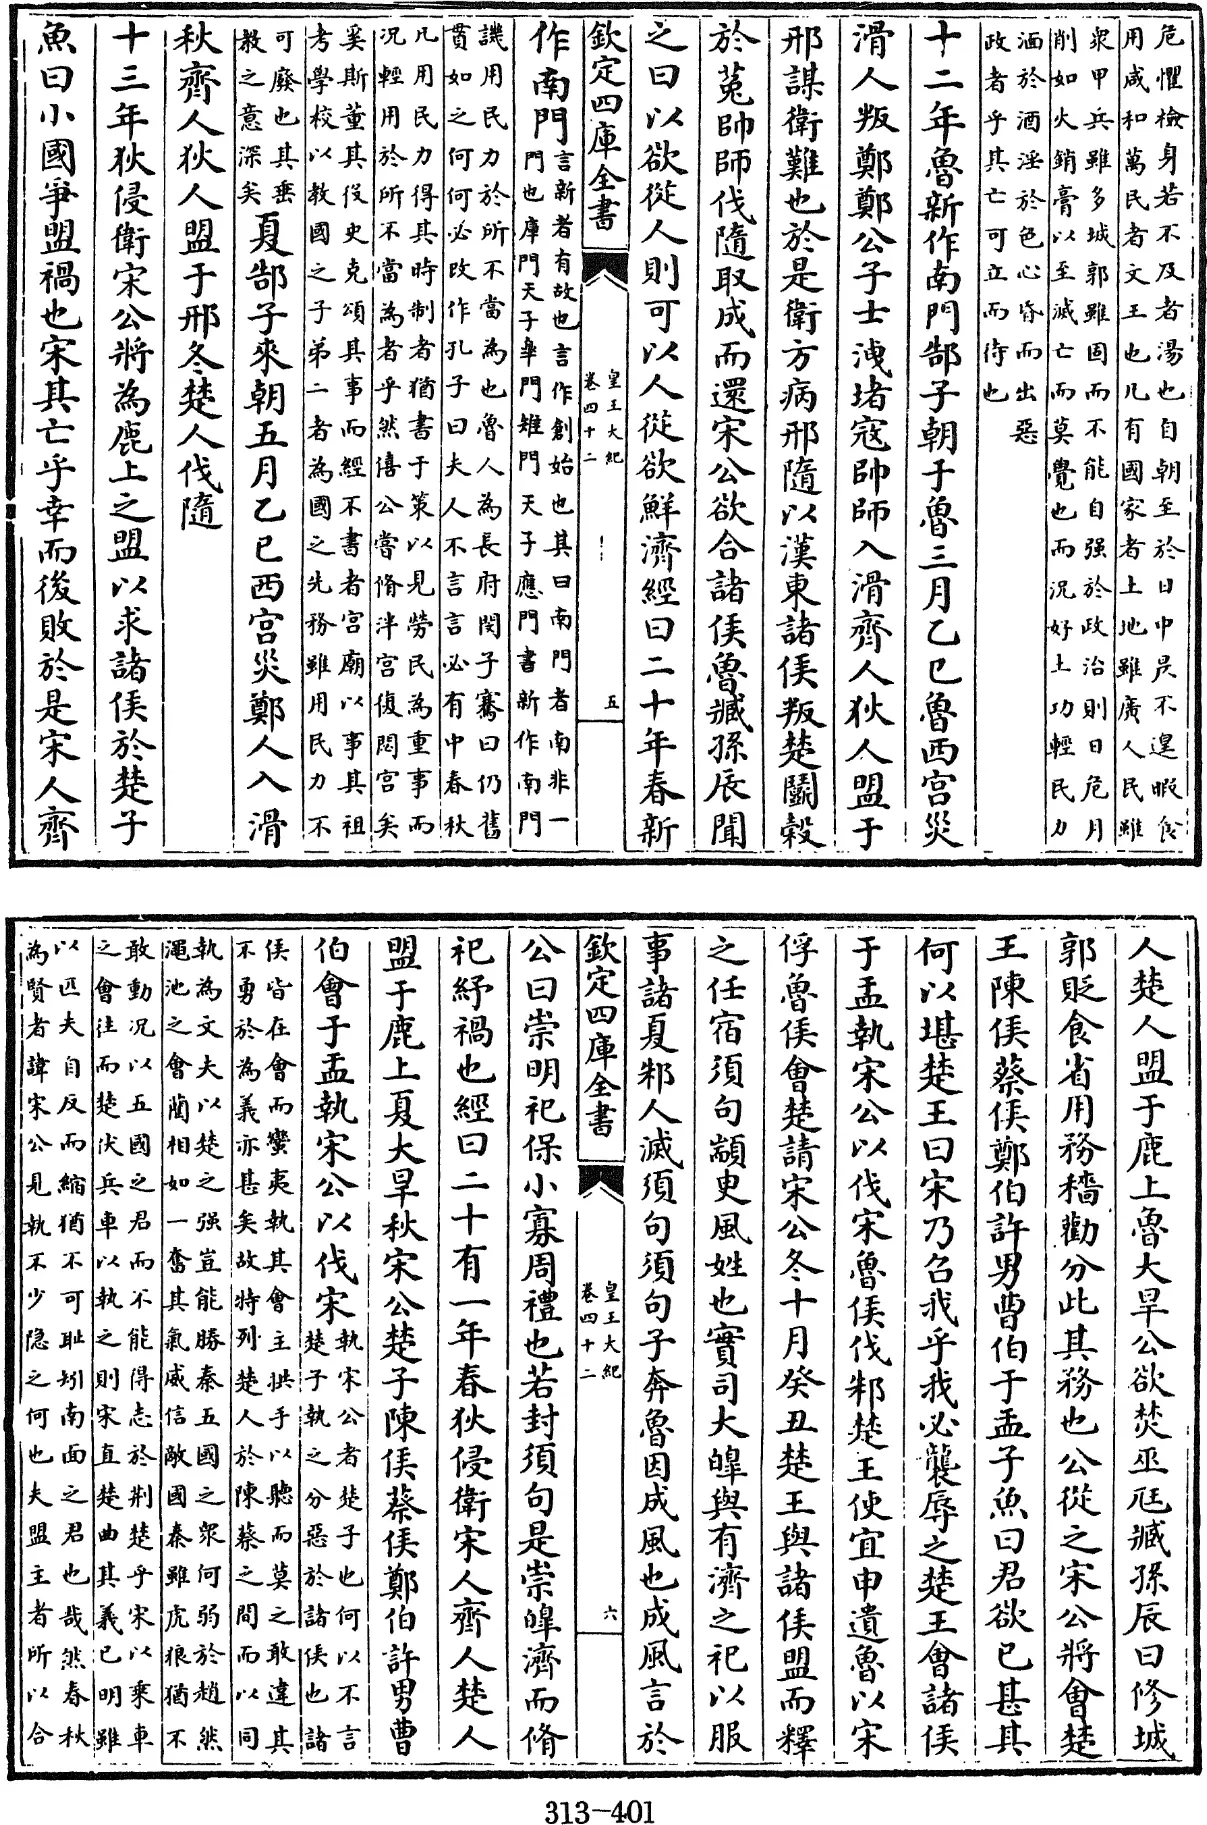 危懼檢身若不及者湯也自朝至於日中昃不遑暇食
用咸和萬民者文王也凡有國家者土地雖廣人民雖
衆甲兵雖多城郭雖固而不能自强於政治則日危月
削如火銷膏以至滅亡而莫覺也而況好土功輕民力
湎於酒淫於色心昏而出惡
政者乎其亡可立而待也
十二年魯新作南門郜子朝于魯三月乙巳魯西宮災
滑人叛鄭鄭公子士洩堵寇帥師入滑齊人狄人盟于
邢謀衛難也於是衛方病邢隨以漢東諸侯叛楚鬭穀
於菟帥師伐隨取成而還宋公欲合諸侯魯臧孫辰聞
之曰以欲從人則可以人從欲鮮濟經曰二十年春新
欽定四庫全書
皇王大紀
卷四十二
五
作南門
言新者有故也言作創始也其曰南門者南非一
門也庫門天子皐門雉門天子應門書新作南門
譏用民力於所不當為也魯人為長府閔子騫曰仍舊
貫如之何何必改作孔子曰夫人不言言必有中春秋
凡用民力得其時制者猶書于策以見勞民為重事而
況輕用於所不當為者乎然僖公嘗脩泮宮復閟宮矣
奚斯董其役史克頌其事而經不書者宮廟以事其祖
考學校以教國之子弟二者為國之先務雖用民力不
可廢也其垂
教之意深矣
夏郜子來朝五月乙巳西宮災鄭人入滑
秋齊人狄人盟于邢冬楚人伐隨
十三年狄侵衛宋公將為鹿上之盟以求諸侯於楚子
魚曰小國爭盟禍也宋其亡乎幸而後敗於是宋人齊
人楚人盟于鹿上魯大旱公欲焚巫尫臧孫辰曰修城
郭貶食省用務穡勸分此其務也公從之宋公將會楚
王陳侯蔡侯鄭伯許男曹伯于盂子魚曰君欲已甚其
何以堪楚王曰宋乃召我乎我必襲辱之楚王會諸侯
于盂執宋公以伐宋魯侯伐邾楚王使宜申遺魯以宋
俘魯侯會楚請宋公冬十月癸丑楚王與諸侯盟而釋
之任宿須句顓臾風姓也實司大皥與有濟之祀以服
事諸夏邾人滅須句須句子奔魯因成風也成風言於
欽定四庫全書
皇王大紀
卷四十二
六
公曰崇明祀保小寡周禮也若封須句是崇皥濟而脩
祀紓禍也經曰二十有一年春狄侵衛宋人齊人楚人
盟于鹿上夏大旱秋宋公楚子陳侯蔡侯鄭伯許男曹
伯會于盂執宋公以伐宋
執宋公者楚子也何以不言
楚子執之分惡於諸侯也諸
侯皆在會而蠻夷執其會主拱手以聽而莫之敢違其
不勇於為義亦甚矣故特列楚人於陳蔡之間而以同
執為文夫以楚之强豈能勝秦五國之衆何弱於趙然
澠池之會藺相如一奮其氣威信敵國秦雖虎狼猶不
敢動況以五國之君而不能得志於荆楚乎宋以乘車
之會往而楚伏兵車以執之則宋直楚曲其義已明雖
以匹夫自反而縮猶不可耻矧南面之君也哉然春秋
為賢者諱宋公見執不少隐之何也夫盟主者所以合
313-401